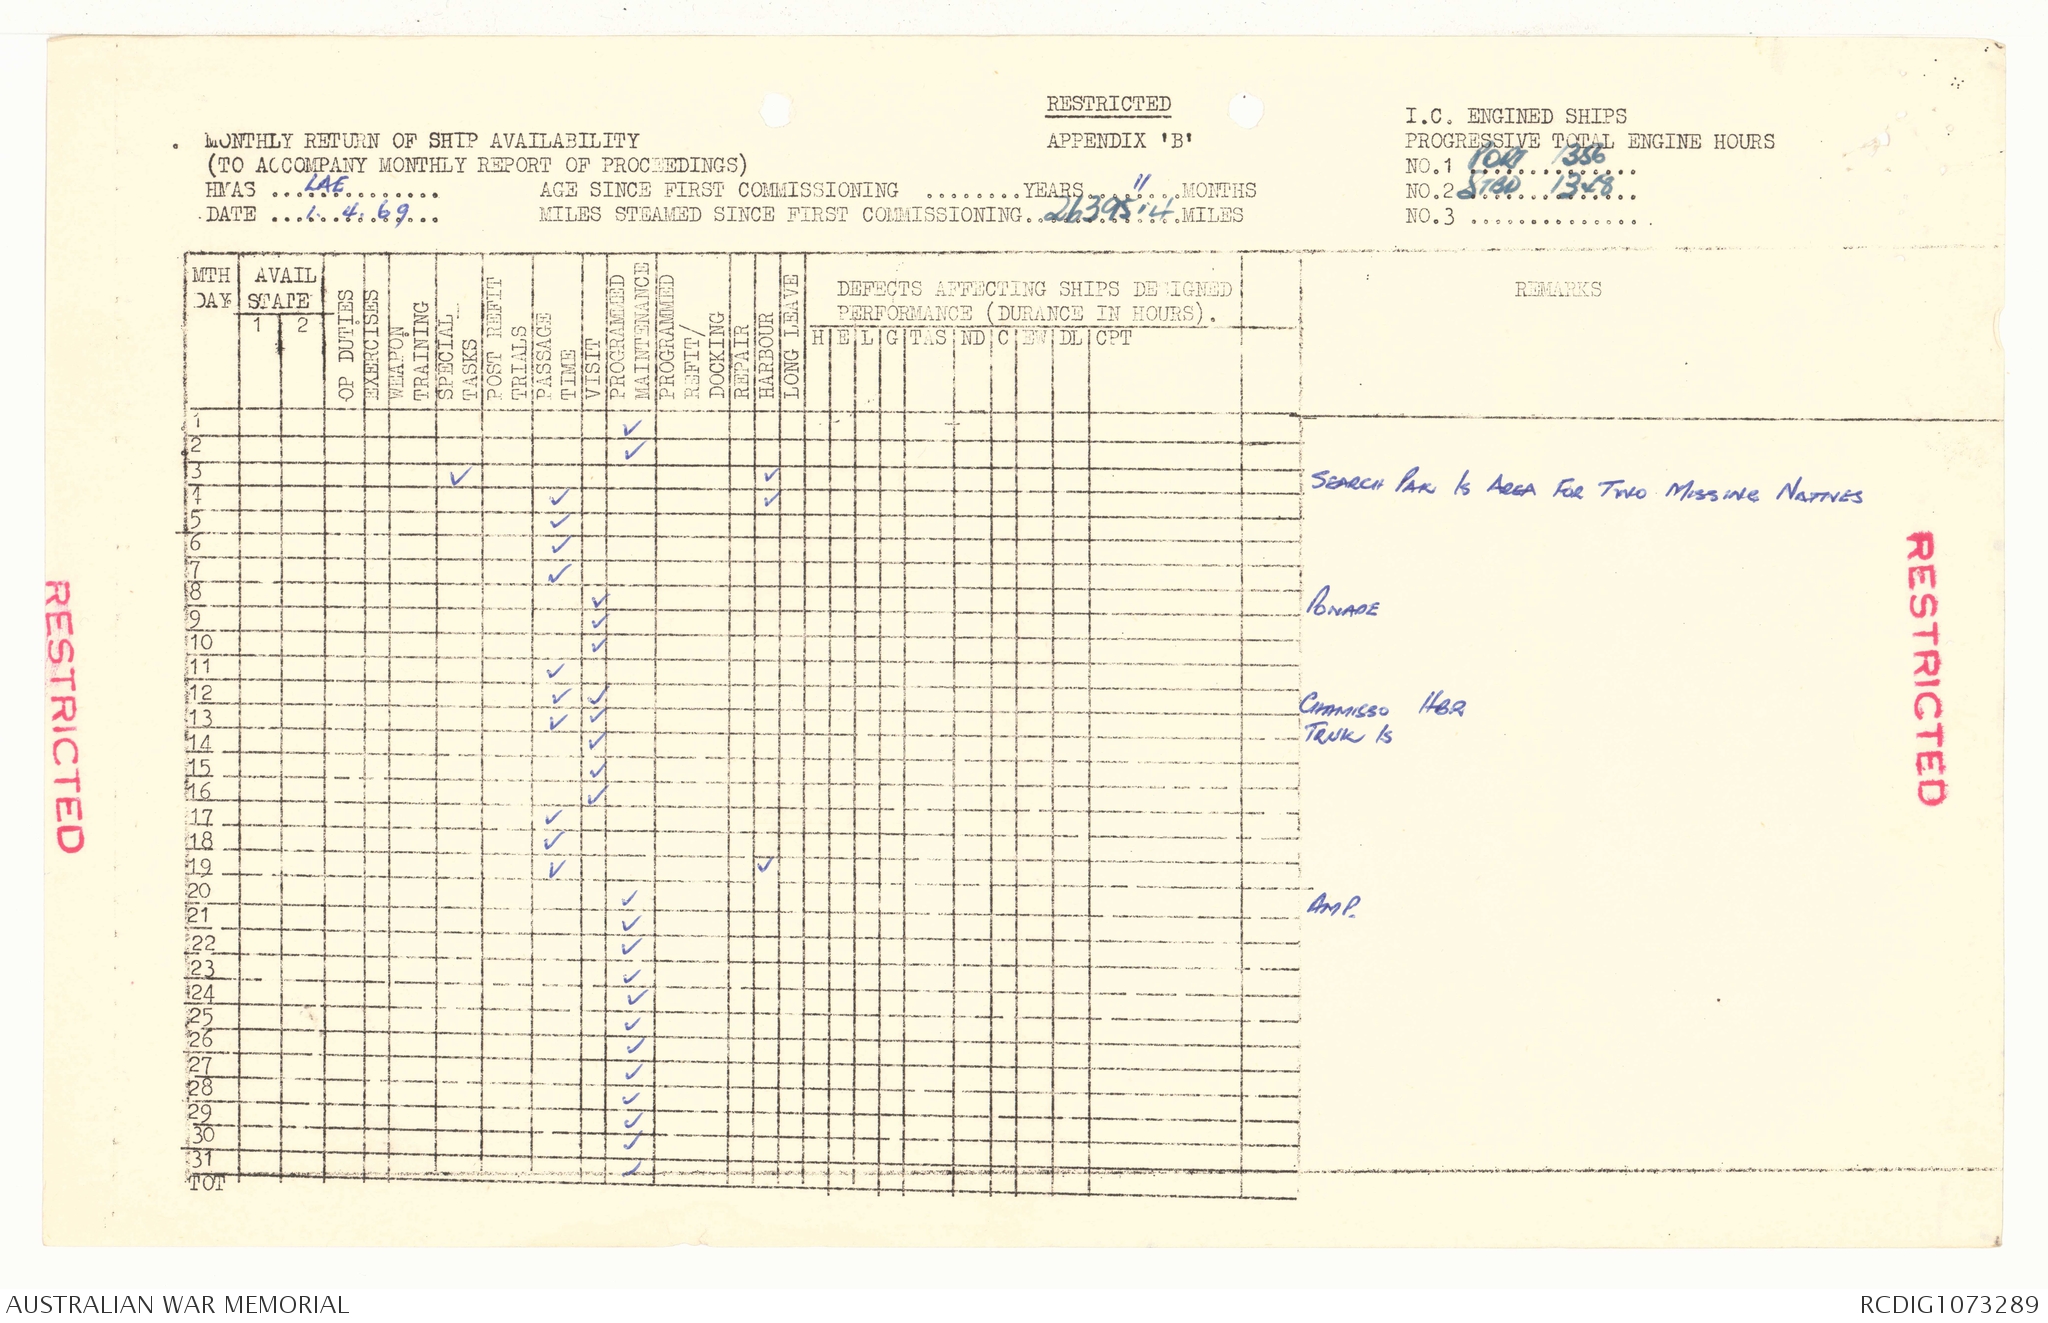 RESTRICTED
MONTHLY RETURN OF SHIP AVAILABILITY
APPENDIX 'B'
(TO ACCOMPANY MONTHLY REPORT OF PROCEEDINGS)
HMAS ...LAE...........
AGE SINCE FIRST COMMISSIONING ........YEARS....11....MONTHS
DATE ...1.4.69...
MILES STEAMED SINCE FIRST COMMISSIONING..26395.4..MILES
I.C. ENGINED SHIPS
PROGRESSIVE TOTAL ENGINE HOURS
NO.1 PORT 1356
NO.2 STBD 1348
NO.3 ...............
MTH DAY
AVAIL STATE
1 2
OP DUTIES
EXERCISES
WEAPON TRAINING
SPECIAL TASKS
POST REFIT TRIALS
PASSAGE TIME
VISIT
PROGRAMMED MAINTENANCE
PROGRAMMED REFIT/ DOCKING
REPAIR
HARBOUR
LONG LEAVE
DEFECTS AFFECTING SHIPS DESIGNED
PERFORMANCE (DURANCE IN HOURS).
H E L G TAS ND C EW DL CPT
REMARKS
1 ✓
2 ✓
3 ✓ ✓ SEARCH PAK IS AREA FOR TWO MISSING NATIVES
4 ✓ ✓
5 ✓
6 ✓
7 ✓
8 ✓ PONAPE
9 ✓
10 ✓
11 ✓
12 ✓ ✓ CHAMISSO HBR
13 ✓ ✓ TRUK IS
14 ✓
15 ✓
16 ✓
17 ✓
18 ✓
19 ✓ ✓
20 ✓ AMP.
21 ✓
22 ✓
23 ✓
24 ✓
25 ✓
26 ✓
27 ✓
28 ✓
29 ✓
30 ✓
31 ✓
TOT
RESTRICTED
RESTRICTED
AUSTRALIAN WAR MEMORIAL
RCDIG1073289